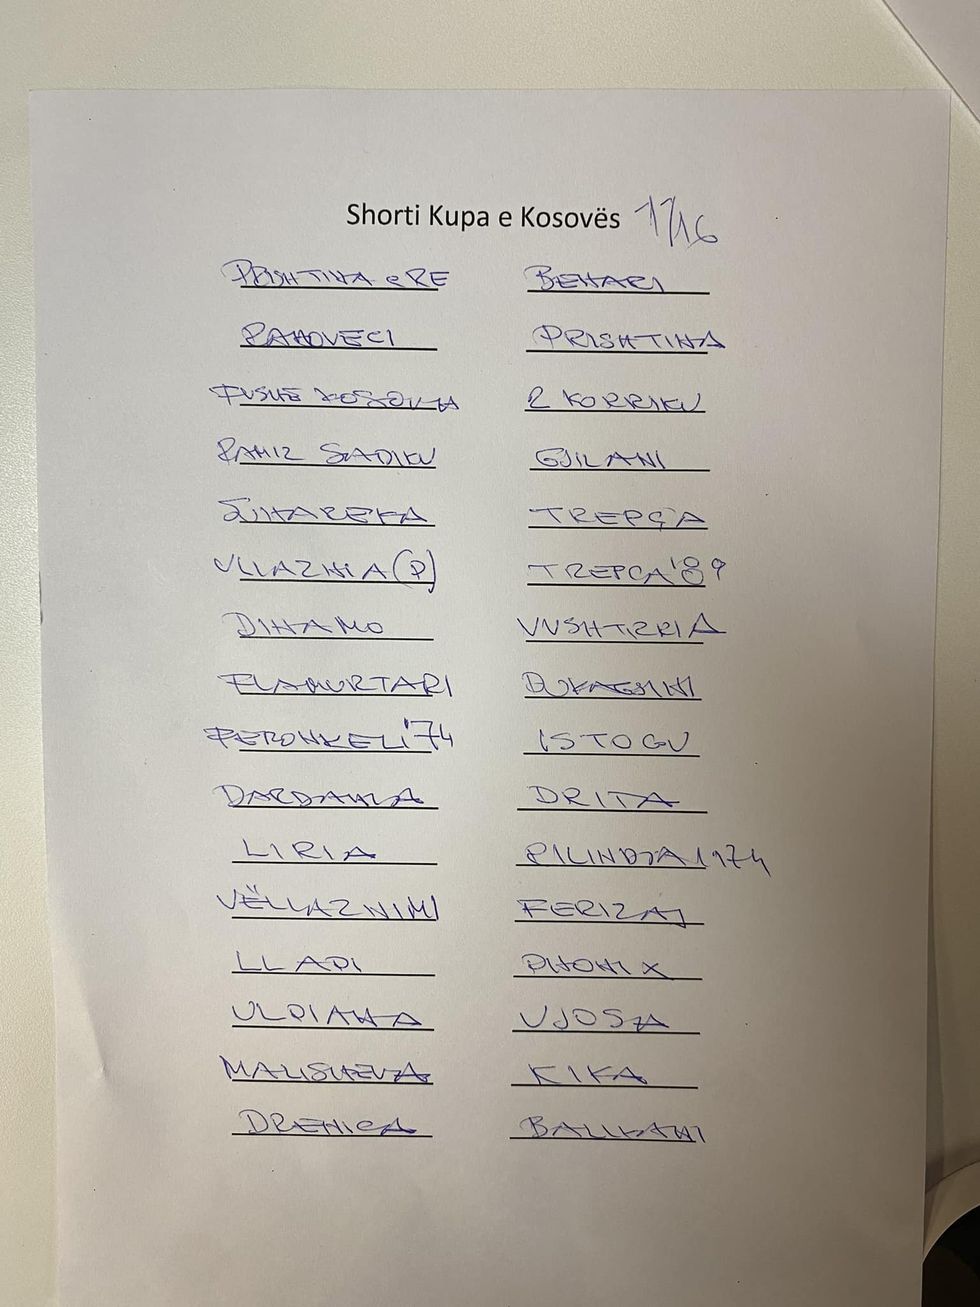 Shorti Kupa e Kosovës 1/16
PRISHTINA e RE BEHARI
RAHOVECI PRISHTINA
FUSHË KOSOVA 2 KORRIKU
RAMIZ SADIKU GJILANI
SUHAREKA TREPÇA
VLLAZNIA (P) TREPÇA'89
DINAMO VUSHTRRIA
FLAMURTARI DUKAGJINI
FERONIKELI'74 ISTOGU
DARDANIA DRITA
LIRIA RILINDJA 1974
VËLLAZNIMI FERIZAJ
LLAPI PHONIX
ULPIANA VJOSA
MALISHEVA KIKA
DRENICA BALLKANI